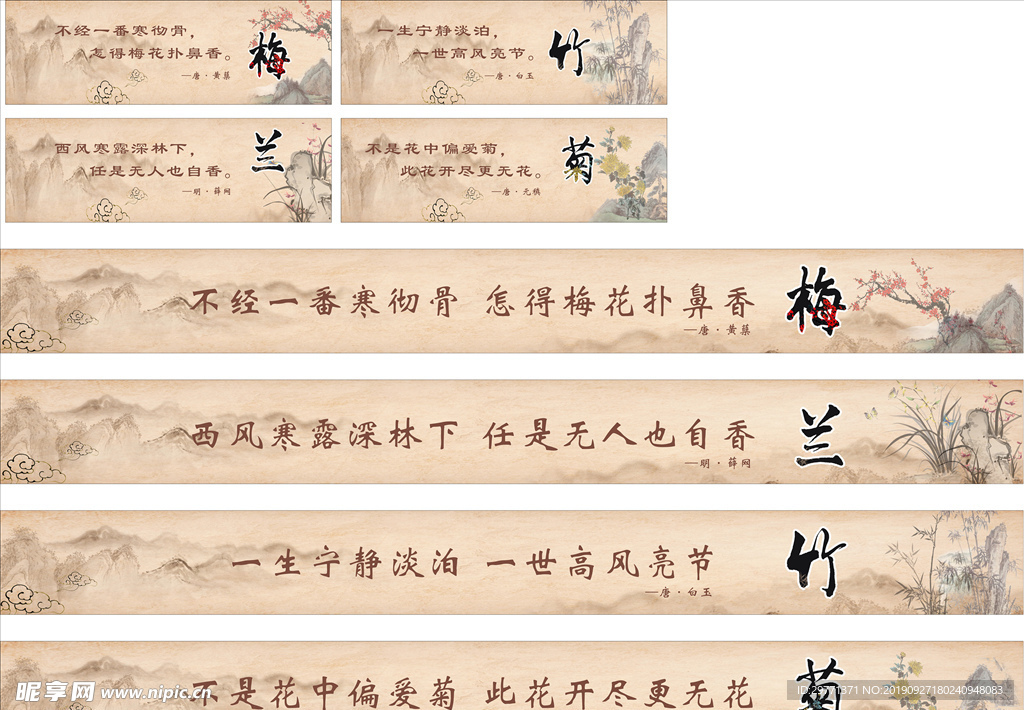 不经一番寒彻骨，
怎得梅花扑鼻香。
—唐·黄巢
梅
一生宁静淡泊，
一世高风亮节。
—唐·白玉
竹
西风寒露深林下，
任是无人也自香。
—明·薛网
兰
不是花中偏爱菊，
此花开尽更无花。
—唐·元稹
菊
不经一番寒彻骨 怎得梅花扑鼻香
—唐·黄巢
梅
西风寒露深林下 任是无人也自香
—明·薛网
兰
一生宁静淡泊 一世高风亮节
—唐·白玉
竹
不是花中偏爱菊 此花开尽更无花
菊
昵享网 www.nipic.cn
ID:29771371 NO:20190927180240948083